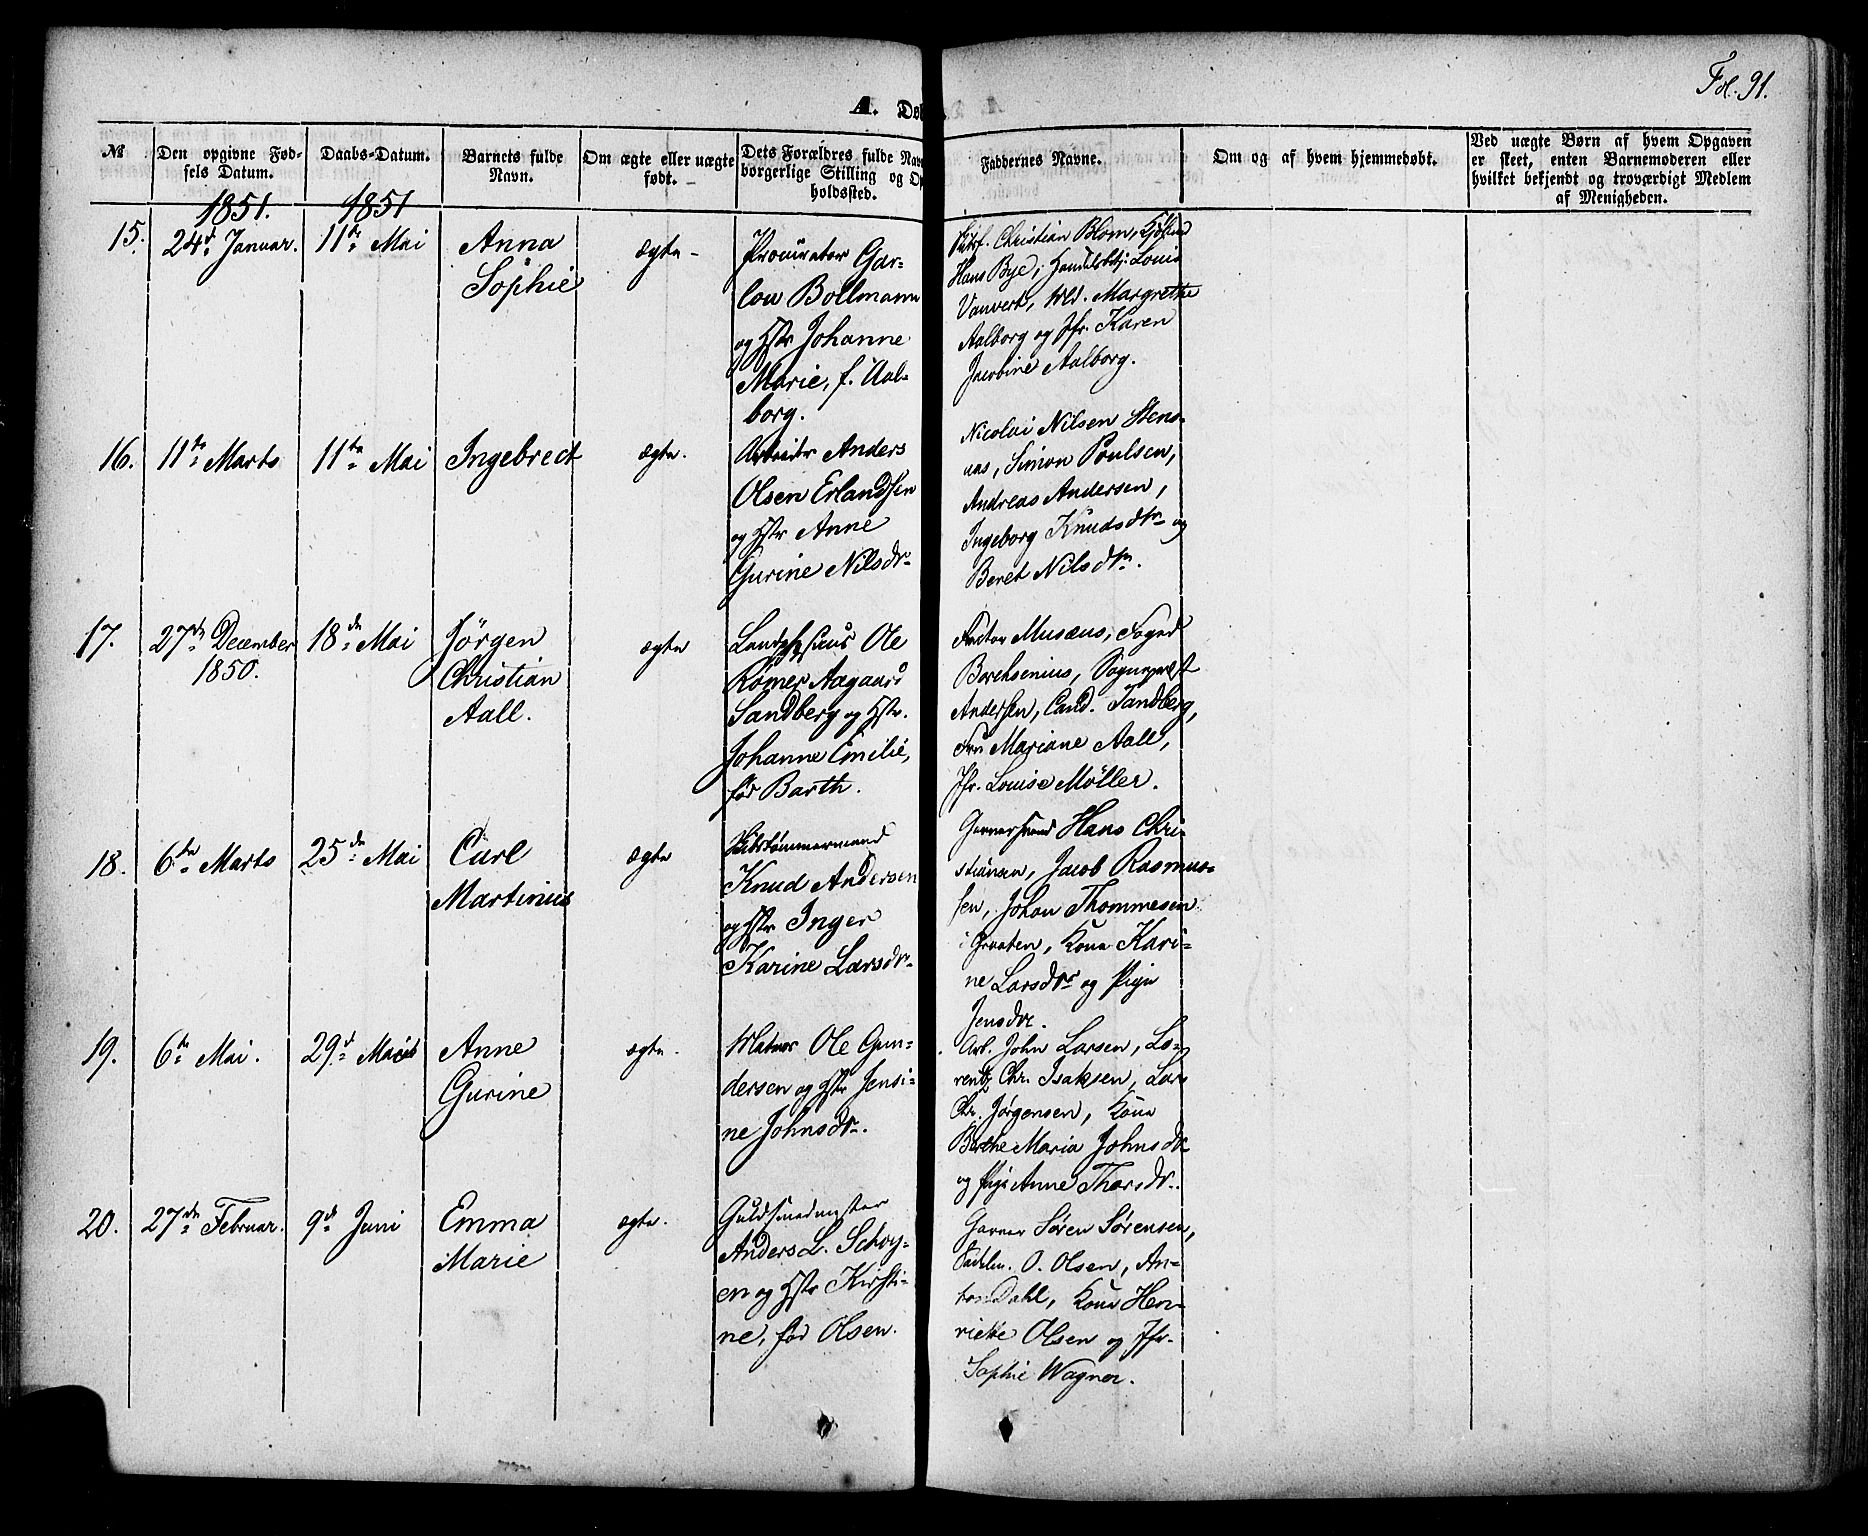 Fol. 91.
A. Døb
No
Den opgivne Fød-
sels Datum.
Daabs-Datum.
Barnets fulde
Navn.
Om ægte eller uægte
født.
Dets Forældres fulde Nav
borgerlige Stilling og Op
holdssted.
Faddernes Navne.
Om og af hvem hjemmedøbt.
Ved uægte Børn af hvem Opgaven
er skeet, enten Barnemoderen eller
hvilket bekjendt og troværdigt Medlem
af Menigheden.
1851.
1851
15.
24d Januar.
11te Mai
Anna
Sophie
ægte
Procurator Gar-
lou Bollmann
og Hstr Johanne
Marie, f. Aal-
borg.
Christian Blom,
Hans Bye, Handelsbetj. Louis
Vauvert, Md. Margrethe
Aalborg og Jfr. Karen
Jacobine Aalborg.
16.
11te Marts
11te Mai
Ingebrect
ægte.
Arbeider Anders
Olsen Erlandsen
og Hstr Anne
Gurine Nilsdr
Nicolai Nilsen Stens-
aas, Simon Poulsen,
Andreas Andersen,
Ingeborg Knudsdtr og
Beret Nilsdtr.
17.
27de December
1850.
18de Mai
Jörgen
Christian
Aall.
ægte
Ole
Rømer Aagaard
Sandberg og Hstr.
Johanne Emilie,
fød Barth.
Factor Musæus, Foged
Borchsenius, Sogneprest
Andersen, Cand. Sandberg,
Fru Mariane Aall,
Jfr. Louise Møller.
18.
6te Marts
25de Mai
Carl
Martinius
ægte
Skibstømmermand
Knud Andersen
og Hstr Inger
Karine Larsdr
Garversvend Hans Chri-
stiansen, Jacob Rasmus-
sen, Johan Thommesen
i Graaten, Kone Kari-
ne Larsdr og Pige
Jensdr.
19.
6te Mai.
29d Mai
Anne
Gurine
ægte.
Matros Ole Gun-
dersen og Hstr Jensi-
ne Johnsdr.
Arb. John Larsen, Lo-
rentz Chr. Isaksen, Lars
Chr. Jørgensen, Kone
Berthe Maria Johnsdr
og Pige Anne Thorsdr.
20.
27de Februar.
9d Juni
Emma
Marie
ægte.
Guldsmedmester
Anders L. Schöy-
en og Hstr Kirsti-
ne, fød Olsen.
Garver Søren Sørensen,
Sadelm. O. Olsen, An-
ton Dahl, Kone Hen-
riette Olsen og Jfr.
Sophie Wagner.